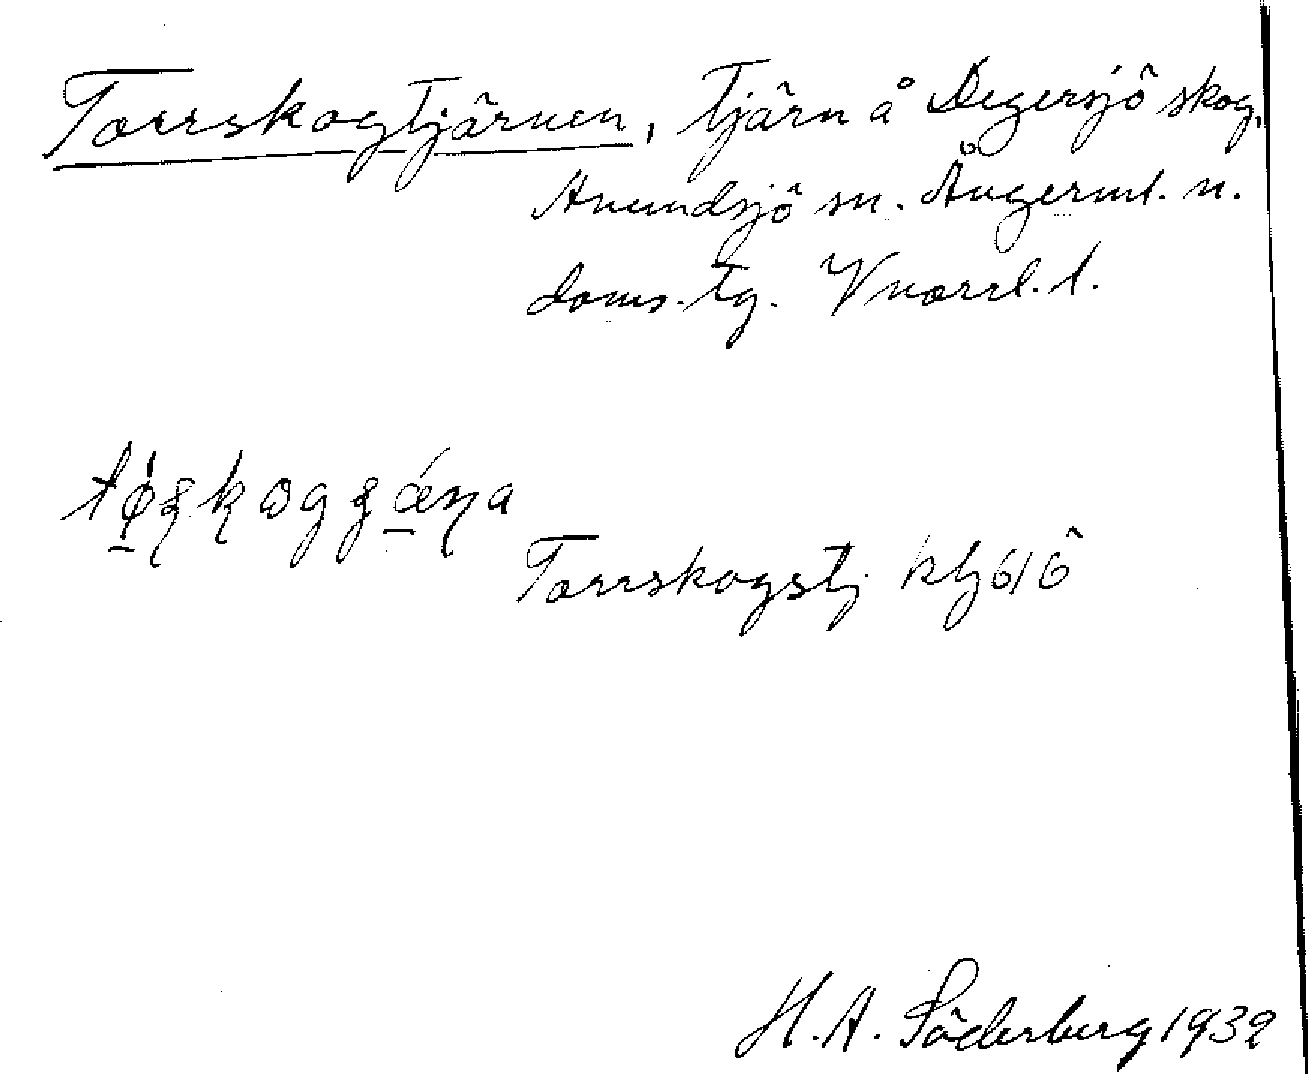 Torrskogtjärnen, tjärn å Degersjö skog,
Anundsjö sn. Ångerml. n.
doms.tg. Vnorrl. l.
Torrskogstj klj 61ö
H. A. Söderberg 1932